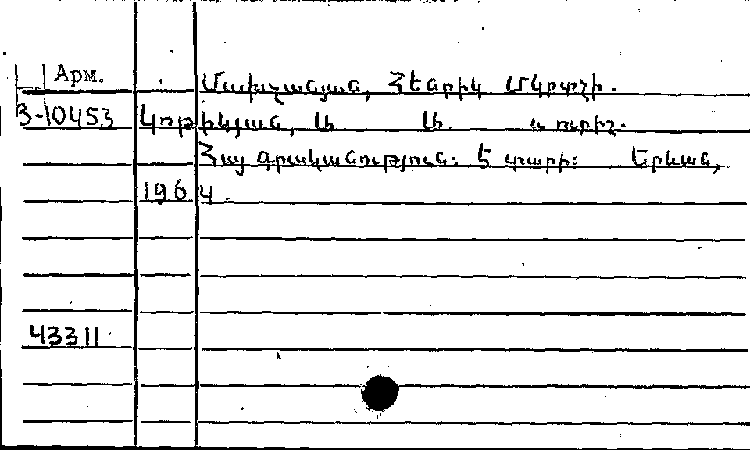 Арм.
Մախչանյան, Հենրիկ Մկրտչի.
3-10453 Կոթիկյան, Ա. և ուրիշ.
Հայ գրականություն: 5 տարի: Երևան,
1964
43311